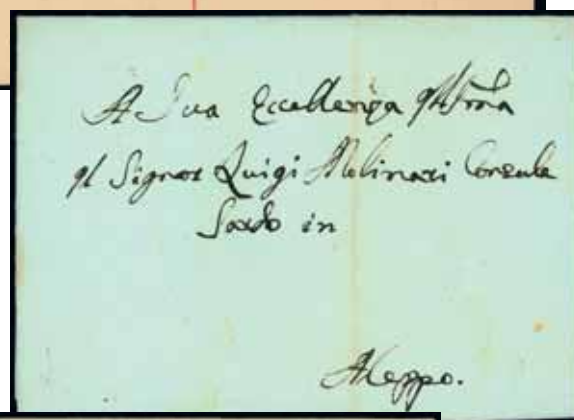 A Sua Eccellenza Illma
Il Signor Luigi Molinari Console
Sardo in
Aleppo.